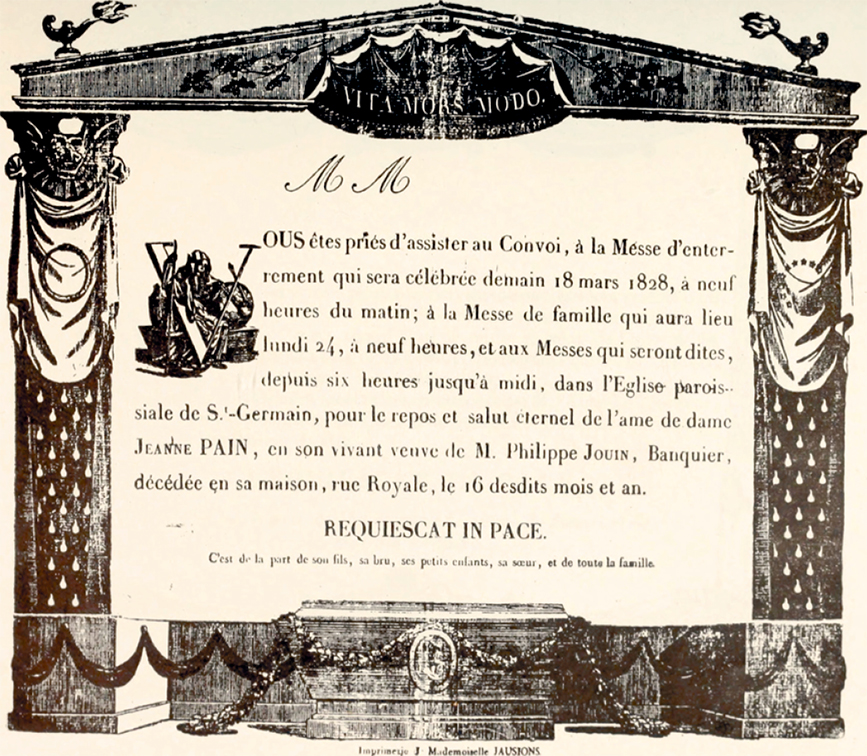 VITA MORS MODO.
M M
OUS êtes priés d'assister au Convoi, à la Messe d'enter-
rement qui sera célébrée demain 18 mars 1828, à neuf
heures du matin; à la Messe de famille qui aura lieu
lundi 24, à neuf heures, et aux Messes qui seront dites,
depuis six heures jusqu'à midi, dans l'Eglise parois-
siale de S.t-Germain, pour le repos et salut éternel de l'ame de dame
JEANNE PAIN, en son vivant veuve de M. Philippe JOUIN, Banquier,
décédée en sa maison, rue Royale, le 16 desdits mois et an.
REQUIESCAT IN PACE.
C'est de la part de son fils, sa bru, ses petits enfants, sa sœur, et de toute la famille.
Imprimerie J Mademoiselle JAUSIONS.